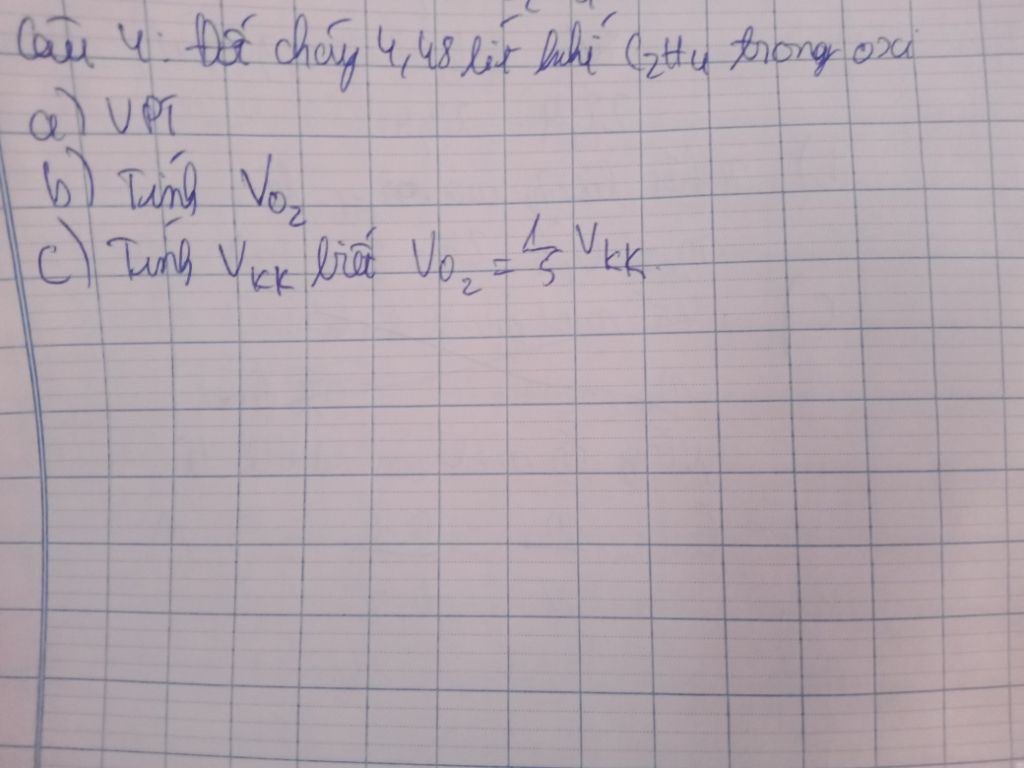 Câu 4: Đốt cháy 4,48 lít khí C2H4 trong oxi
a) VPT
b) Tính VO2
c) Tính VKK biết VO2 = 1/5 VKK